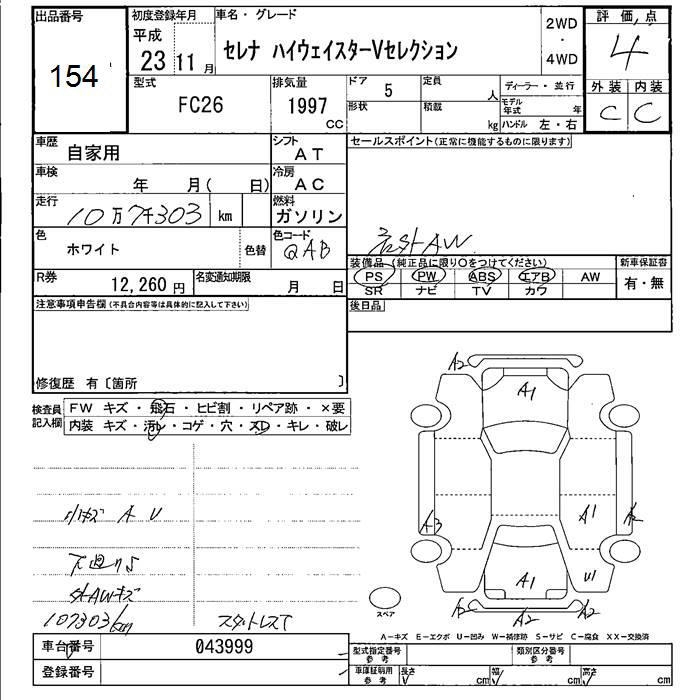 出品番号
154
初度登録年月
平成
23 11 月
車名・グレード
セレナ ハイウェイスターVセレクション
2WD
・
4WD
評価点
4
外装 内装
C C
型式
FC26
排気量
1997
CC
ドア
5
定員
人
形状
積載
kg
ディーラー・並行
モデル年式 年
ハンドル 左・右
車歴
自家用
シフト
AT
車検
年 月( 日)
冷房
AC
走行
10万7千303 km
燃料
ガソリン
色
ホワイト
色替
色コード
QAB
R券
12,260 円
名変通知期限
月 日
セールスポイント(正常に機能するものに限ります)
社外AW
装備品(純正品に限り○をつけてください)
PS PW ABS エアB AW
SR ナビ TV カワ
新車保証書
有・無
後日品
注意事項申告欄(不具合内容等は具体的に記入して下さい)
修復歴 有〔箇所 〕
検査員記入欄
FW キズ・飛石・ヒビ割・リペア跡・×要
内装 キズ・汚レ・コゲ・穴・スレ・キレ・破レ
小キズ A U
下廻りS
外AWキズ
107303km
スタッドレスT
A2
A1
A3
A1
A2
A1
U1
A2
A2
A2
スペア
A-キズ E-エクボ U-凹み W-補修跡 S-サビ C-腐食 XX-交換済
車台番号
043999
登録番号
型式指定番号
参考
類別区分番号
参考
車庫証明用
参考
長さ cm 幅 cm 高さ cm